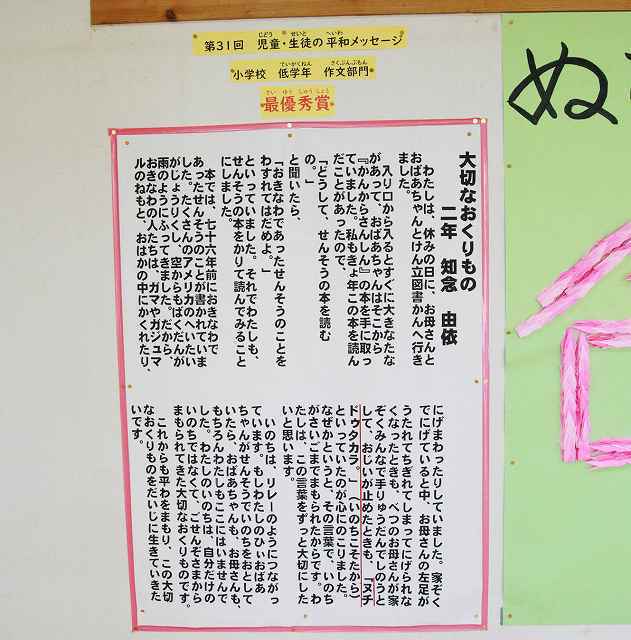 第31回 児童・生徒の平和メッセージ
小学校 低学年 作文部門
最優秀賞
大切なおくりもの
二年 知念 由依
わたしは、休みの日に、お母さんと
おばあちゃんとけん立図書かんへ行き
ました。
入り口から入るとすぐに大きなたな
があって、おばあちゃんはそこから
『かんからさんしん』の本を手に取っ
ていました。私もきょ年この本を読ん
だことがあったので、
「どうして、せんそうの本を読む
の。」
と聞いたら、
「おきなわであったせんそうのことを
わすれてはだめよ。」
といっていました。それでわたしも、
せんそうの本をかりて読んでみること
にしました。
本では、七十六年前におきなわで
あったせんそうのことが書かれていま
した。たくさんのアメリカのへいたい
がじょうりくし、空からもばくだんが
雨のようにふってきました。だから、
おきなわの人たちは、ガマやガジュマ
ルのねもと、おはかの中にかくれたり、
にげまわったりしていました。家ぞく
でにげていると中、お母さんの左足が
うたれてちぎれてしまってにげられな
くなったときも、べつのお母さんが家
ぞくみんなで手りゅうだんでしのうと
して、おじいが止めたときも、「ヌチ
ドゥタカラ。」(いのちこそたから)
といっていたのが心にのこりました。
なぜかというと、その言葉で、いのち
がさいごまでまもられたからです。わ
たしは、この言葉をずっと大切にした
いと思います。
いのちは、リレーのようにつながっ
ています。もしわたしのひぃおばあ
ちゃんがせんそうでいのちをおとして
いたら、おばあちゃんも、お母さんも、
もちろんわたしもここにはいませんで
した。わたしのいのちは、自分だけの
いのちではなくて、ごせんぞさまから
まもられてきた大切なおくりものです。
これからも平わをまもり、この大切
なおくりものをだいじに生きていきた
いです。
ぬ